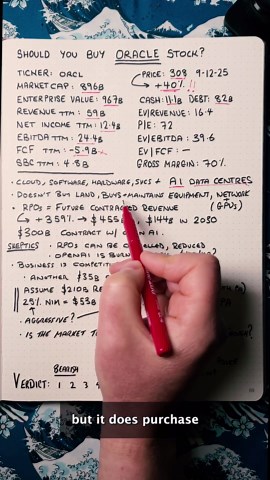 SHOULD YOU BUY ORACLE STOCK?
TICKER: ORCL
MARKET CAP: 896B
ENTERPRISE VALUE: 967B
REVENUE TTM: 59B
NET INCOME TTM: 12.4B
EBITDA TTM: 24.4B
FCF TTM: -5.9B
SBC TTM: 4.8B
PRICE: 308 9-12-25
+40% !!
CASH: 11.1B DEBT: 82B
EV/REVENUE: 16.4
P/E: 72
EV/EBITDA: 39.6
EV/FCF: —
GROSS MARGIN: 70%
• CLOUDS, SOFTWARE, HARDWARE, SVCS + AI DATA CENTRES
• DOESN'T BUY LAND, BUYS + MAINTAINS EQUIPMENT, NETWORK
(GPUS)
• RPOS = FUTURE CONTRACTED REVENUE
↳ +359% → $455B $144B IN 2030
$300B CONTRACT W/ OPENAI
SKEPTICS • RPOS CAN BE REDUCED
• OPENAI IS BURN
• BUSINESS IS COMPETITI
• ANOTHER $35B
ASSUME $210B RE
25% NIM = $53B
• AGGRESSIVE?
• IS THE MARKET
BEARISH
VERDICT: 1 2 3 4
but it does purchase